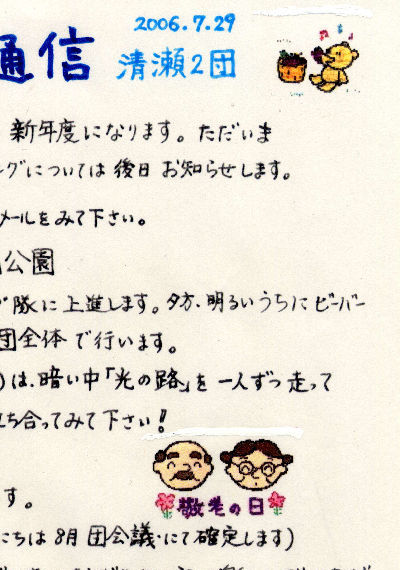 2006.7.29
通信 清瀬2団
新年度になります。ただいま
ングについては後日 お知らせします。
メールをみて下さい。
公園
隊に上進します。夕方、明るいうちにビーバー
団全体で行います。
)は、暗い中「光の路」を一人ずつ走って
ち合ってみて下さい!
敬老の日
す。
にちは 8月 団会議にて確定します)